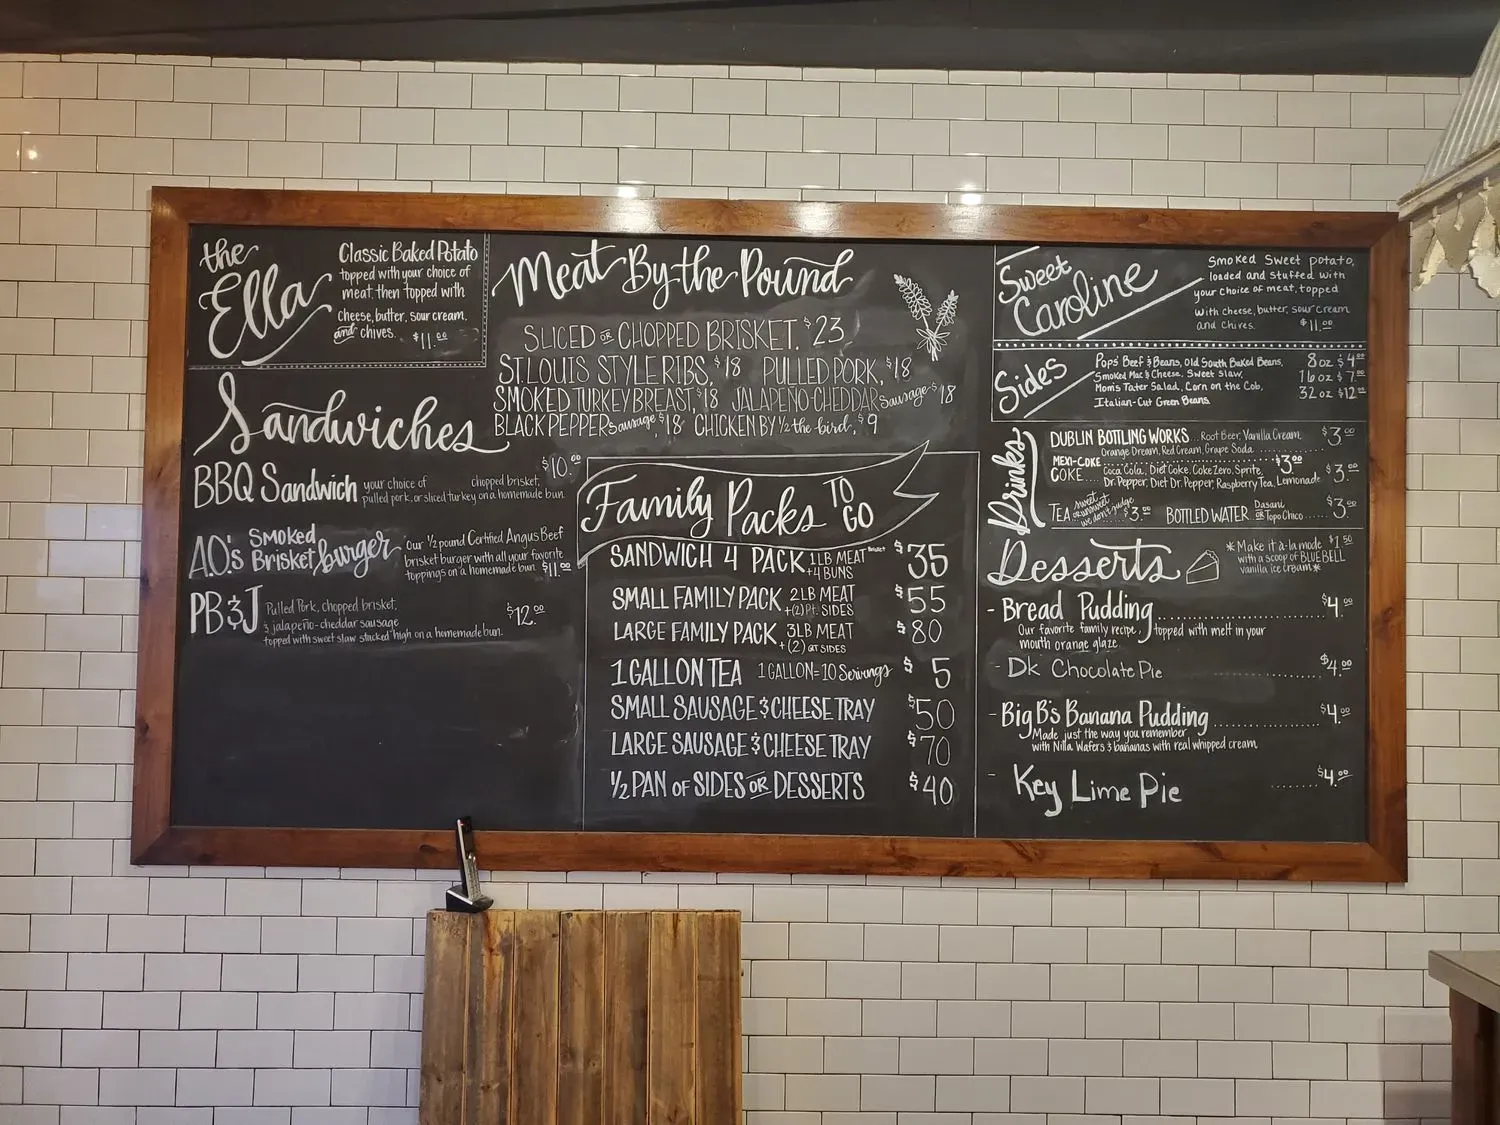 the
Ella
Classic Baked Potato
topped with your choice of
meat then topped with
cheese, butter, sour cream,
and chives. $11.00
Sandwiches
$10.00
BBQ Sandwich your choice of chopped brisket,
pulled pork, or sliced turkey on a homemade bun.
A.O.'s Smoked Brisket burger
our 1/2 pound Certified Angus Beef
brisket burger with all your favorite
toppings on a homemade bun $11.00
PB&J Pulled Pork, chopped brisket, $12.00
& jalapeño-cheddar sausage
topped with sweet slaw stacked high on a homemade bun.
Meat By the Pound
SLICED OR CHOPPED BRISKET, $23
ST. LOUIS STYLE RIBS, $18 PULLED PORK, $18
SMOKED TURKEY BREAST, $18 JALAPEÑO-CHEDDAR Sausage $18
BLACK PEPPER Sausage, $18 CHICKEN BY 1/2 the bird, $9
Family Packs TO GO
SANDWICH 4 PACK 1 LB MEAT Brisket $35
+4 BUNS
SMALL FAMILY PACK 2 LB MEAT $55
+(2) Pt. SIDES
LARGE FAMILY PACK 3 LB MEAT $80
+(2) QT SIDES
1 GALLON TEA 1 GALLON = 10 Servings $5
SMALL SAUSAGE & CHEESE TRAY $50
LARGE SAUSAGE & CHEESE TRAY $70
1/2 PAN OF SIDES OR DESSERTS $40
Sweet
Caroline
Smoked Sweet potato,
loaded and stuffed with
your choice of meat, topped
with cheese, butter, sour cream
and chives. $11.00
Sides
Pops' Beef & Beans, Old South Baked Beans, 8 oz $4.00
Smoked Mac & Cheese, Sweet Slaw, 16 oz $7.00
Mom's Tater Salad, Corn on the Cob, 32 oz $12.00
Italian-Cut Green Beans
Drinks
DUBLIN BOTTLING WORKS... Root Beer, Vanilla Cream, $3.00
Orange Dream, Red Cream, Grape Soda
MEXI-COKE $3.00
COKE.... Coca Cola, Diet Coke, Coke Zero, Sprite, $3.00
Dr. Pepper, Diet Dr. Pepper, Raspberry Tea, Lemonade
TEA sweet or unsweet we don't judge $3.00 BOTTLED WATER Dasani OR Topo Chico...... $3.00
Desserts
*Make it à-la mode $1.50
with a scoop of BLUEBELL
vanilla ice cream*
- Bread Pudding $4.00
Our favorite family recipe, topped with melt in your
mouth orange glaze
- Dk Chocolate Pie $4.00
- Big B's Banana Pudding $4.00
Made just the way you remember
with Nilla Wafers & bananas with real whipped cream
- Key Lime Pie $4.00